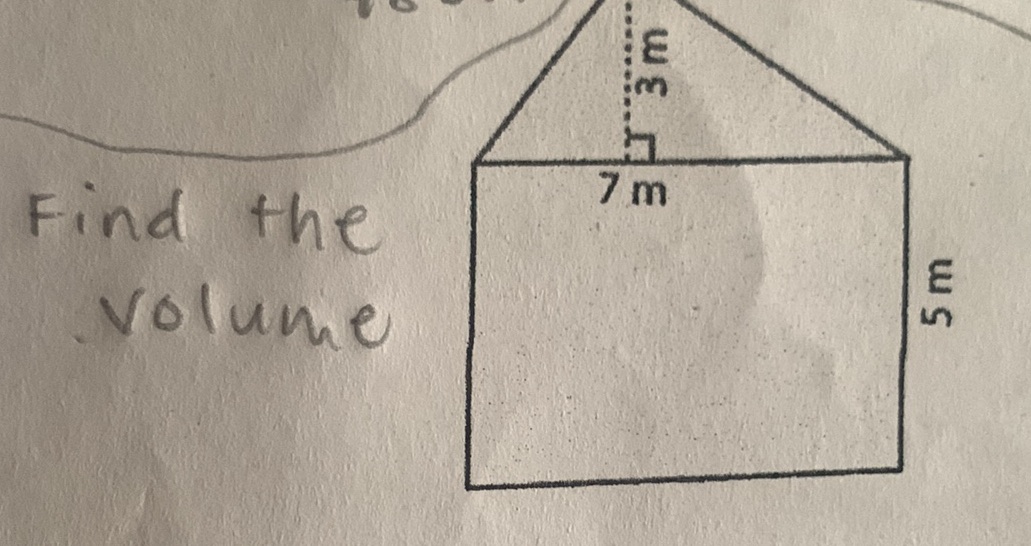 3 m
7 m
Find the
volume
5 m